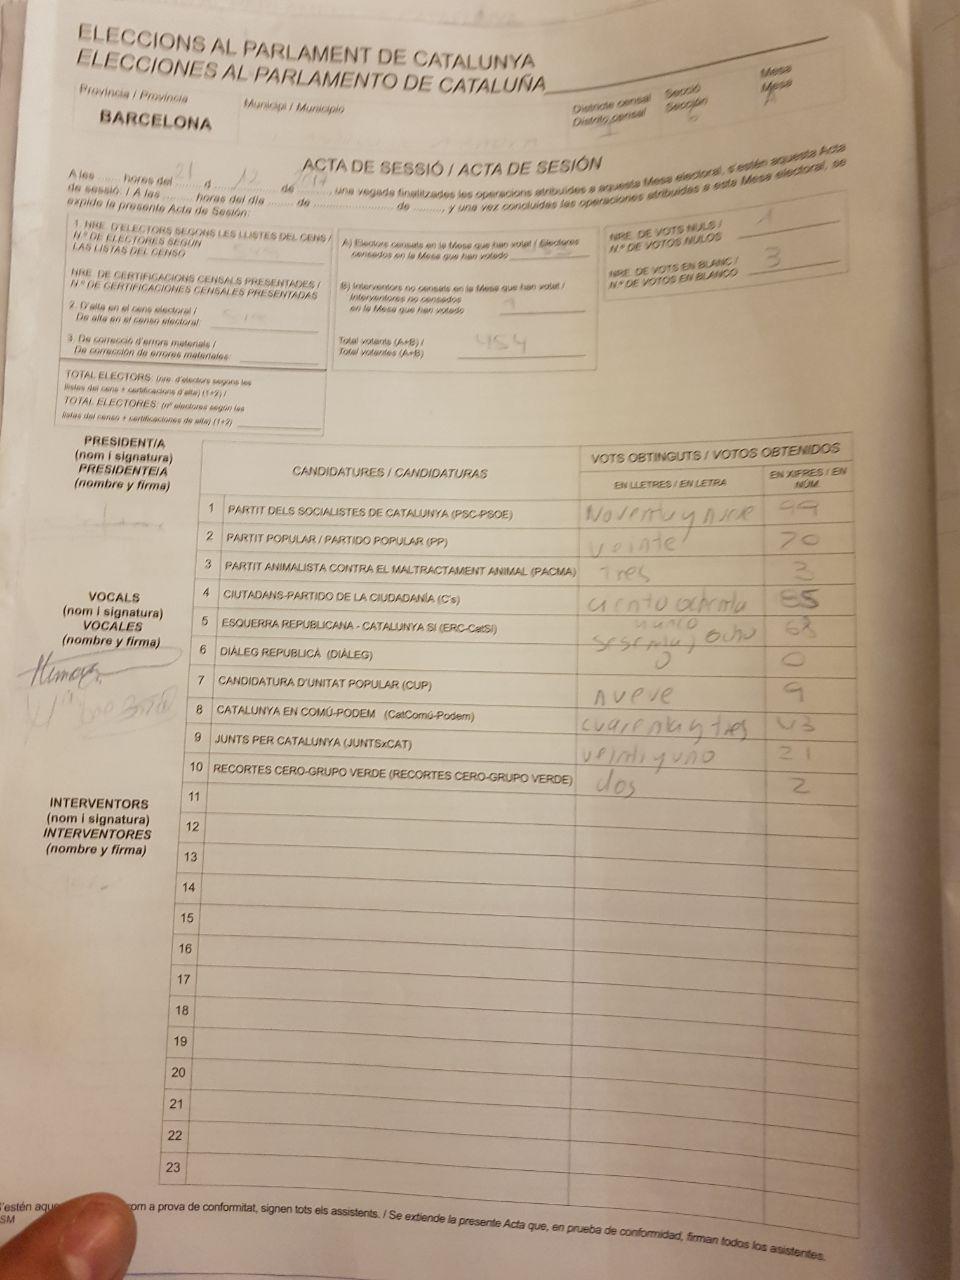 ELECCIONS AL PARLAMENT DE CATALUNYA
ELECCIONES AL PARLAMENTO DE CATALUÑA
Província / Provincia
BARCELONA
Municipi / Municipio
Districte censal
Distrito censal
Secció
Sección
Mesa
Mesa
A
ACTA DE SESSIÓ / ACTA DE SESIÓN
A les ...... hores del 21 d 12 de 2017 una vegada finalitzades les operacions atribuïdes a aquesta Mesa electoral, s'estén aquesta Acta
de sessió. / A las ........ horas del día ....... de ...................... de ........, y una vez concluidas las operaciones atribuidas a esta Mesa electoral, se
expide la presente Acta de Sesión:
1. NRE. D'ELECTORS SEGONS LES LLISTES DEL CENS /
N.º DE ELECTORES SEGÚN
LAS LISTAS DEL CENSO
NRE. DE CERTIFICACIONS CENSALS PRESENTADES /
N.º DE CERTIFICACIONES CENSALES PRESENTADAS
2. D'alta en el cens electoral /
De alta en el censo electoral:
3. De correcció d'errors materials /
De corrección de errores materiales:
TOTAL ELECTORS: (nre. d'electors segons les
llistes del cens + certificacions d'alta) (1+2) /
TOTAL ELECTORES: (nº electores según las
listas del censo + certificaciones de alta) (1+2)
A) Electors censats en la Mesa que han votat / Electores
censados en la Mesa que han votado
B) Interventors no censats en la Mesa que han votat /
Interventores no censados
en la Mesa que han votado
Total votants (A+B) /
Total votantes (A+B)
454
NRE. DE VOTS NULS /
N.º DE VOTOS NULOS
1
NRE. DE VOTS EN BLANC /
N.º DE VOTOS EN BLANCO
3
PRESIDENT/A
(nom i signatura)
PRESIDENTE/A
(nombre y firma)
VOCALS
(nom i signatura)
VOCALES
(nombre y firma)
INTERVENTORS
(nom i signatura)
INTERVENTORES
(nombre y firma)
CANDIDATURES / CANDIDATURAS
VOTS OBTINGUTS / VOTOS OBTENIDOS
EN LLETRES / EN LETRA
EN XIFRES / EN
NÚM.
1 PARTIT DELS SOCIALISTES DE CATALUNYA (PSC-PSOE) Noventa y nueve 99
2 PARTIT POPULAR / PARTIDO POPULAR (PP) veinte 20
3 PARTIT ANIMALISTA CONTRA EL MALTRACTAMENT ANIMAL (PACMA) Tres 3
4 CIUTADANS-PARTIDO DE LA CIUDADANÍA (C's) ciento ochenta 85
5 ESQUERRA REPUBLICANA - CATALUNYA SÍ (ERC-CatSí) sesenta y ocho 68
6 DIÀLEG REPUBLICÀ (DIÀLEG) 0 0
7 CANDIDATURA D'UNITAT POPULAR (CUP) nueve 9
8 CATALUNYA EN COMÚ-PODEM (CatComú-Podem) cuarenta y tres 43
9 JUNTS PER CATALUNYA (JUNTSxCAT) veinti y uno 21
10 RECORTES CERO-GRUPO VERDE (RECORTES CERO-GRUPO VERDE) dos 2
11
12
13
14
15
16
17
18
19
20
21
22
23
S'estén aque om a prova de conformitat, signen tots els assistents. / Se extiende la presente Acta que, en prueba de conformidad, firman todos los asistentes.
SM